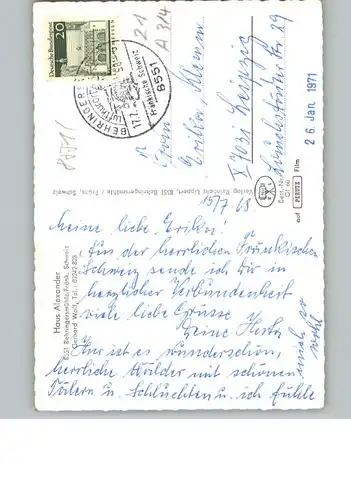 Deutsche Bundespost
20
BEHRINGERSMÜHLE
Luftkurort
17.7.
Fränkische Schweiz
8551
21
A 3/4
Frau
Erika Klemm
X 7031 Leipzig
29
26. Jan. 1971
Haus Alexander
8551 Behringersmühle/Fränk. Schweiz
Gerhard Wolf, Tel.: 09242-835
Verlag Reinhold Lippert, 8551 Behringersmühle / Fränk. Schweiz
Best.-Nr.
Of 60
auf PERUTZ Film
15/7. 68
Meine liebe Erika!
Aus der herrlichen Fränkischen
Schweiz sende ich dir in
herzlicher Verbundenheit
viele liebe Grüsse
Deine Herta
Hier ist es wunderschön,
herrliche Wälder mit schönen
Tälern u. Schluchten u. ich fühle
mich so
wohl